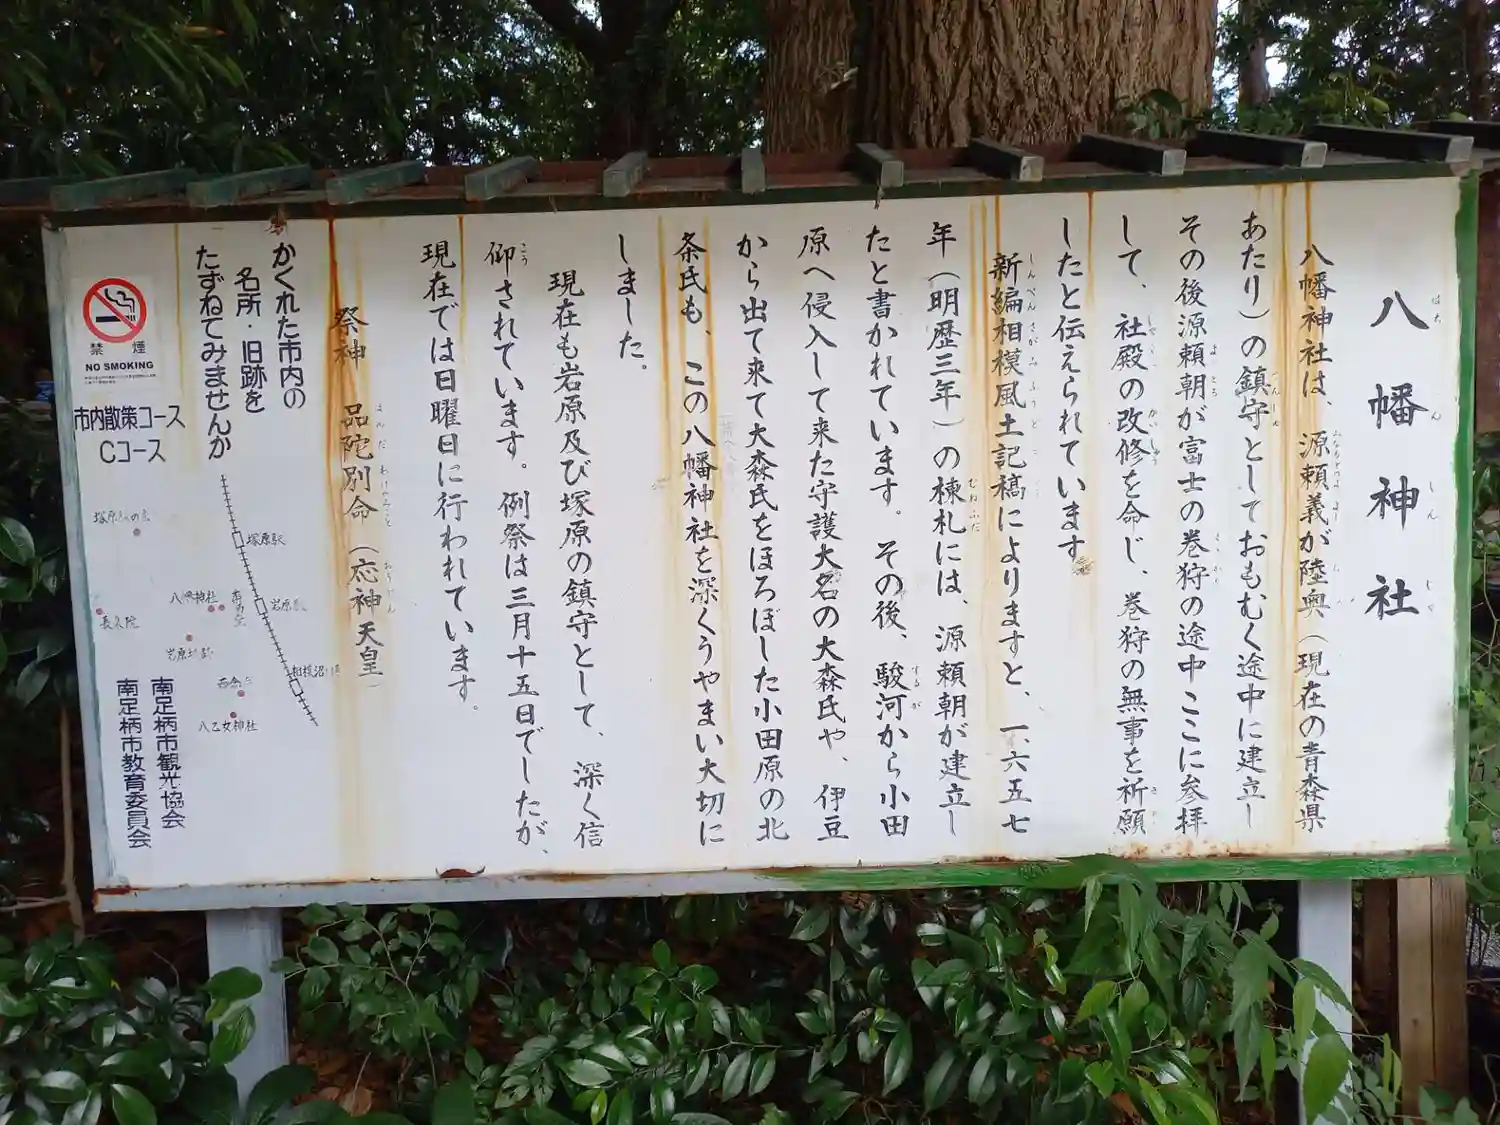 八幡神社
八幡神社は、源頼義が陸奥（現在の青森県
あたり）の鎮守としておもむく途中に建立し
その後源頼朝が富士の巻狩の途中ここに参拝
して、社殿の改修を命じ、巻狩の無事を祈願
したと伝えられています
新編相模風土記稿によりますと、一、六五七
年（明歴三年）の棟札には、源頼朝が建立し
たと書かれています。その後、駿河から小田
原へ侵入して来た守護大名の大森氏や、伊豆
から出て来て大森氏をほろぼした小田原の北
条氏も、この八幡神社を深くうやまい大切に
しました。
現在も岩原及び塚原の鎮守として、深く信
仰されています。例祭は三月十五日でしたが、
現在では日曜日に行われています。
祭神 品陀別命（応神天皇）
かくれた市内の
名所・旧跡を
たずねてみませんか
禁煙
NO SMOKING
市内散策コース
Cコース
塚原駅
八幡神社
岩原
長泉院
八乙女神社
南足柄市観光協会
南足柄市教育委員会